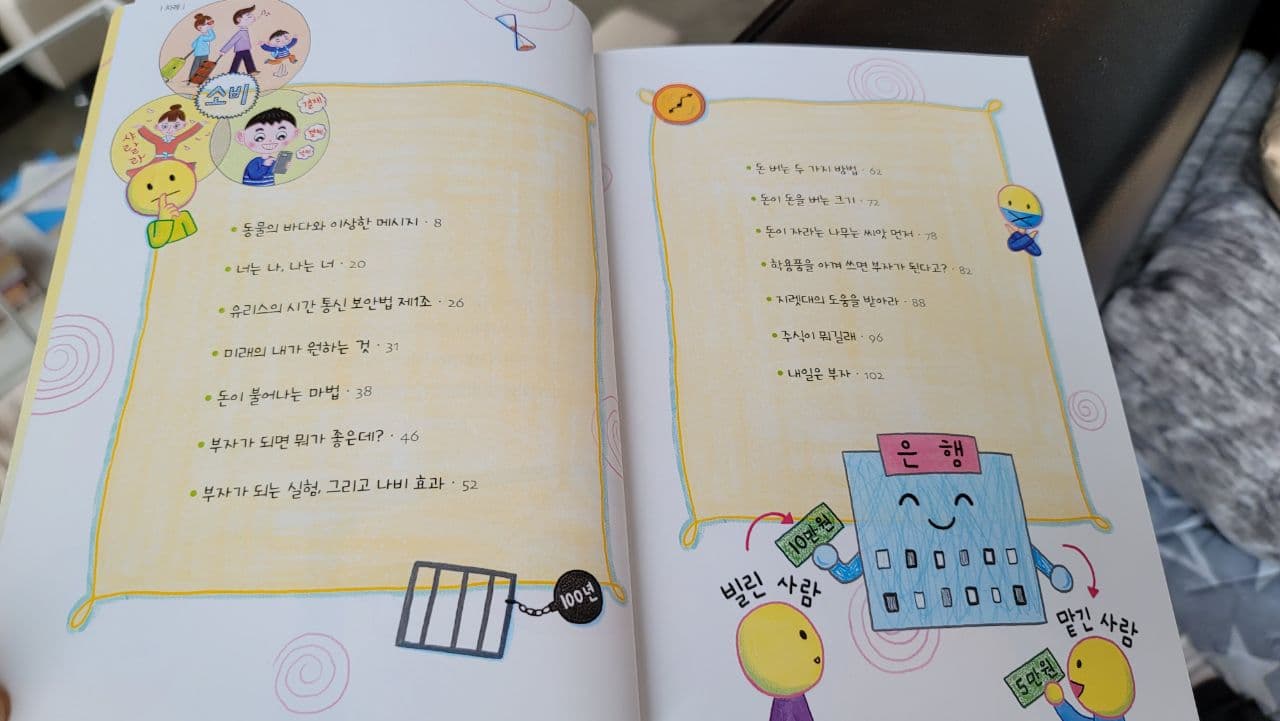 | 차례 |
소비
샤랄라
결제!
결제!
결제!
• 동물의 바다와 이상한 메시지 · 8
• 너는 나, 나는 너 · 20
• 유리스의 시간 통신 보안법 제1조 · 26
• 미래의 내가 원하는 것 · 31
• 돈이 불어나는 마법 · 38
• 부자가 되면 뭐가 좋은데? · 46
• 부자가 되는 실험, 그리고 나비 효과 · 52
100년
• 돈 버는 두 가지 방법 · 62
• 돈이 돈을 버는 크기 · 72
• 돈이 자라는 나무는 씨앗 먼저 · 78
• 학용품을 아껴 쓰면 부자가 된다고? · 82
• 지렛대의 도움을 받아라 · 88
• 주식이 뭐길래 · 96
• 내일은 부자 · 102
은행
10만원
빌린 사람
맡긴 사람
5만원